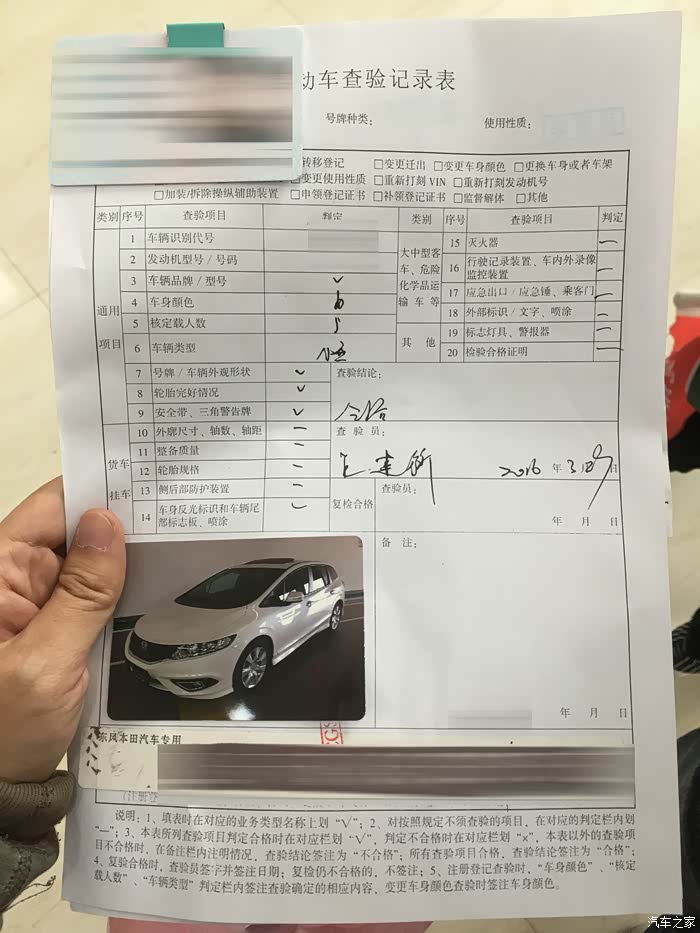 动车查验记录表
号牌种类： 使用性质：
转移登记 □变更迁出 □变更车身颜色 □更换车身或者车架
□变更使用性质 □重新打刻 VIN □重新打刻发动机号
□加装/拆除操纵辅助装置 □申领登记证书 □补领登记证书 □监督解体 □其他
类别 序号 查验项目 判定 类别 序号 查验项目 判定
通用项目
1 车辆识别代号
2 发动机型号/号码
3 车辆品牌/型号 ✓
4 车身颜色
5 核定载人数 5
6 车辆类型
7 号牌/车辆外观形状 ✓
8 轮胎完好情况 ✓
9 安全带、三角警告牌 ✓
货车挂车
10 外廓尺寸、轴数、轴距 —
11 整备质量 —
12 轮胎规格 —
13 侧后部防护装置 —
14 车身反光标识和车辆尾部标志板、喷涂
大中型客车、危险化学品运输车等
15 灭火器 —
16 行驶记录装置、车内外录像监控装置 —
17 应急出口/应急锤、乘客门 —
18 外部标识/文字、喷涂 —
其他
19 标志灯具、警报器 —
20 检验合格证明 —
查验结论：
合格
查 验 员：
2016 年 3 日
复检合格 查验员：
年 月 日
备 注：
年 月 日
东风本田汽车专用
（注册登
说明：1、填表时在对应的业务类型名称上划“√”；2、对按照规定不须查验的项目，在对应的判定栏内划
“—”；3、本表所列查验项目判定合格时在对应栏划“√”，判定不合格时在对应栏划“×”，本表以外的查验项
目不合格时，在备注栏内注明情况，查验结论签注为“不合格”；所有查验项目合格，查验结论签注为“合格”；
4、复验合格时，查验员签字并签注日期；复检仍不合格的，不签注；5、注册登记查验时，“车身颜色”、“核定
载人数”、“车辆类型”判定栏内签注查验确定的相应内容，变更车身颜色查验时签注车身颜色。
汽车之家